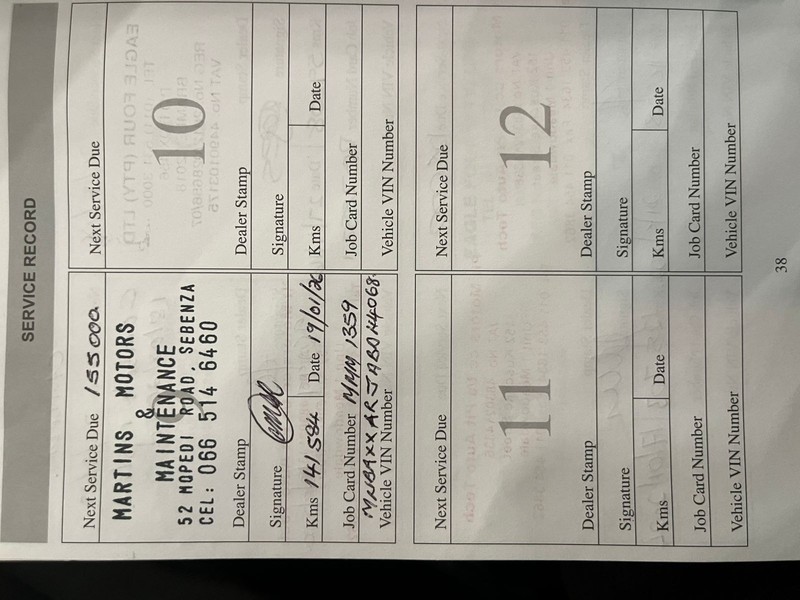 SERVICE RECORD
Next Service Due 155000
MARTINS MOTORS
&
MAINTENANCE
52 MOPEDI ROAD, SEBENZA
CEL: 066 514 6460
Dealer Stamp
Signature
Kms 141 584 Date 19/01/26
Job Card Number MMM 1359
Vehicle VIN Number
Next Service Due
10
Dealer Stamp
Signature
Kms Date
Job Card Number
Vehicle VIN Number
Next Service Due
11
Dealer Stamp
Signature
Kms Date
Job Card Number
Vehicle VIN Number
Next Service Due
12
Dealer Stamp
Signature
Kms Date
Job Card Number
Vehicle VIN Number
38